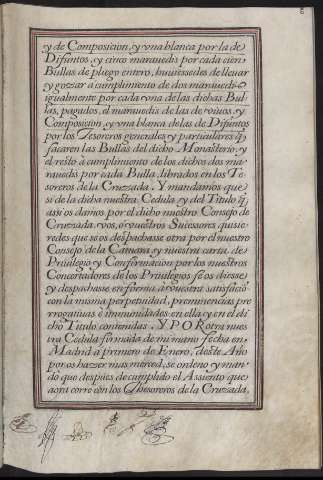 y de Composicion, y vna blanca por la de
Difuntos, y cinco marauedis por cada cien
Bullas de pliego entero, huuiessedes de lleuar
y gozar a cumplimiento de dos marauedis
igualmente por cada vna de las dichas Bul
las, pagados, el marauedi de las de viuos, y
Composicion, y vna blanca de las de Difuntos
por los Tesoreros generales y particulares q̃
sacaren las Bullas del dicho Monasterio, y
el resto a cumplimiento de los dichos dos ma
rauedis por cada Bulla, librados en los Te
soreros de la Cruzada. Y mandamos que
si de la dicha nuestra Cedula y del Titulo q̃
assi os damos por el dicho nuestro Consejo de
Cruzada, vos, ó vuestros Sucessores quisie
redes que se os despachasse otra por el nuestro
Consejo de la Camara y nuestra carta de
Priuilegio y Confirmacion por los nuestros
Concertadores de los Priuilegios se os diesse
y despachasse en forma, à vuestra satisfació
con la misma perpetuidad, preeminencias pre
rrogatiuas é inmunidades en ella y en el di
cho Titulo contenidas. Y POR otra nues
tra Cedula firmada de mi mano fecha en
Madrid a primero de Enero, deste Año
por os hazer mas merced, se ordeno y man
dó que despues de cumplido el Assiento que
aora corre con los Thesoreros de la Cruzada,